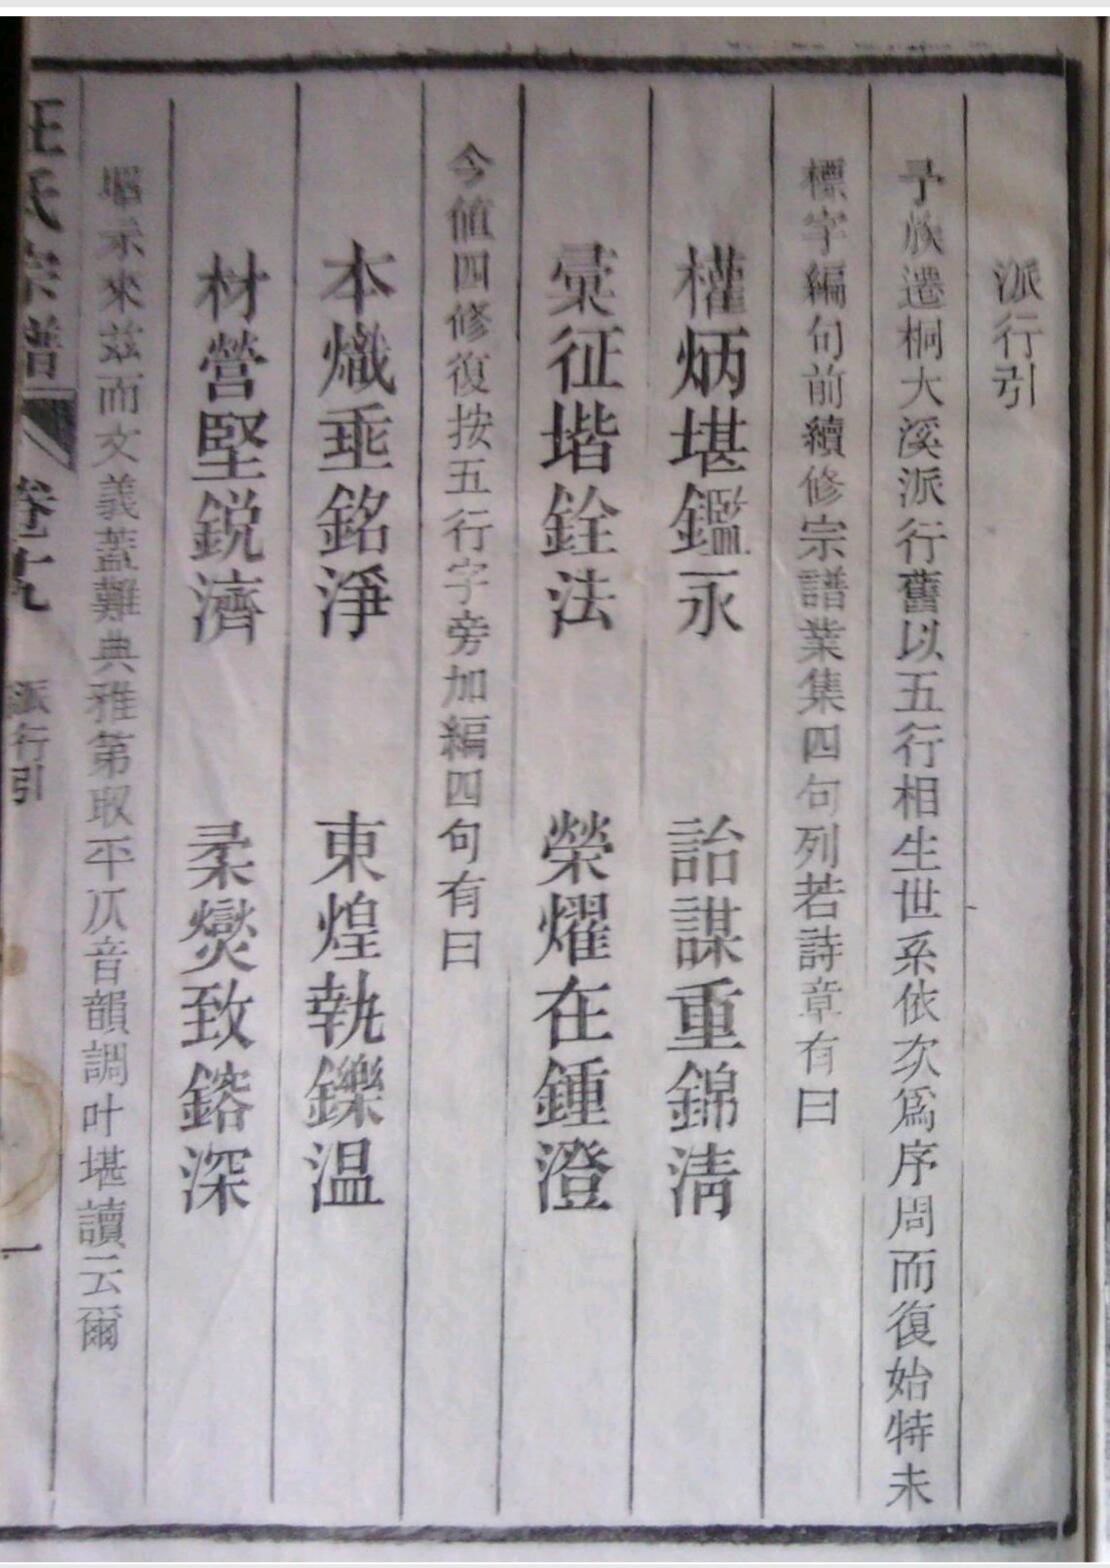 派行引
予族遷桐大溪派行舊以五行相生世系依次爲序周而復始特未
標字編句前續修宗譜業集四句列若詩章有曰
權炳堪鑑永 詒謀重錦清
彙征堦銓法 榮耀在鍾澄
今值四修復按五行字旁加編四句有曰
本熾垂銘淨 東煌執鑠温
材營堅鋭濟 柔爕致鎔深
示來兹而文義蓋難典雅第取平仄音韻調叶堪讀云爾
汪氏宗譜 卷十九 派行引 一